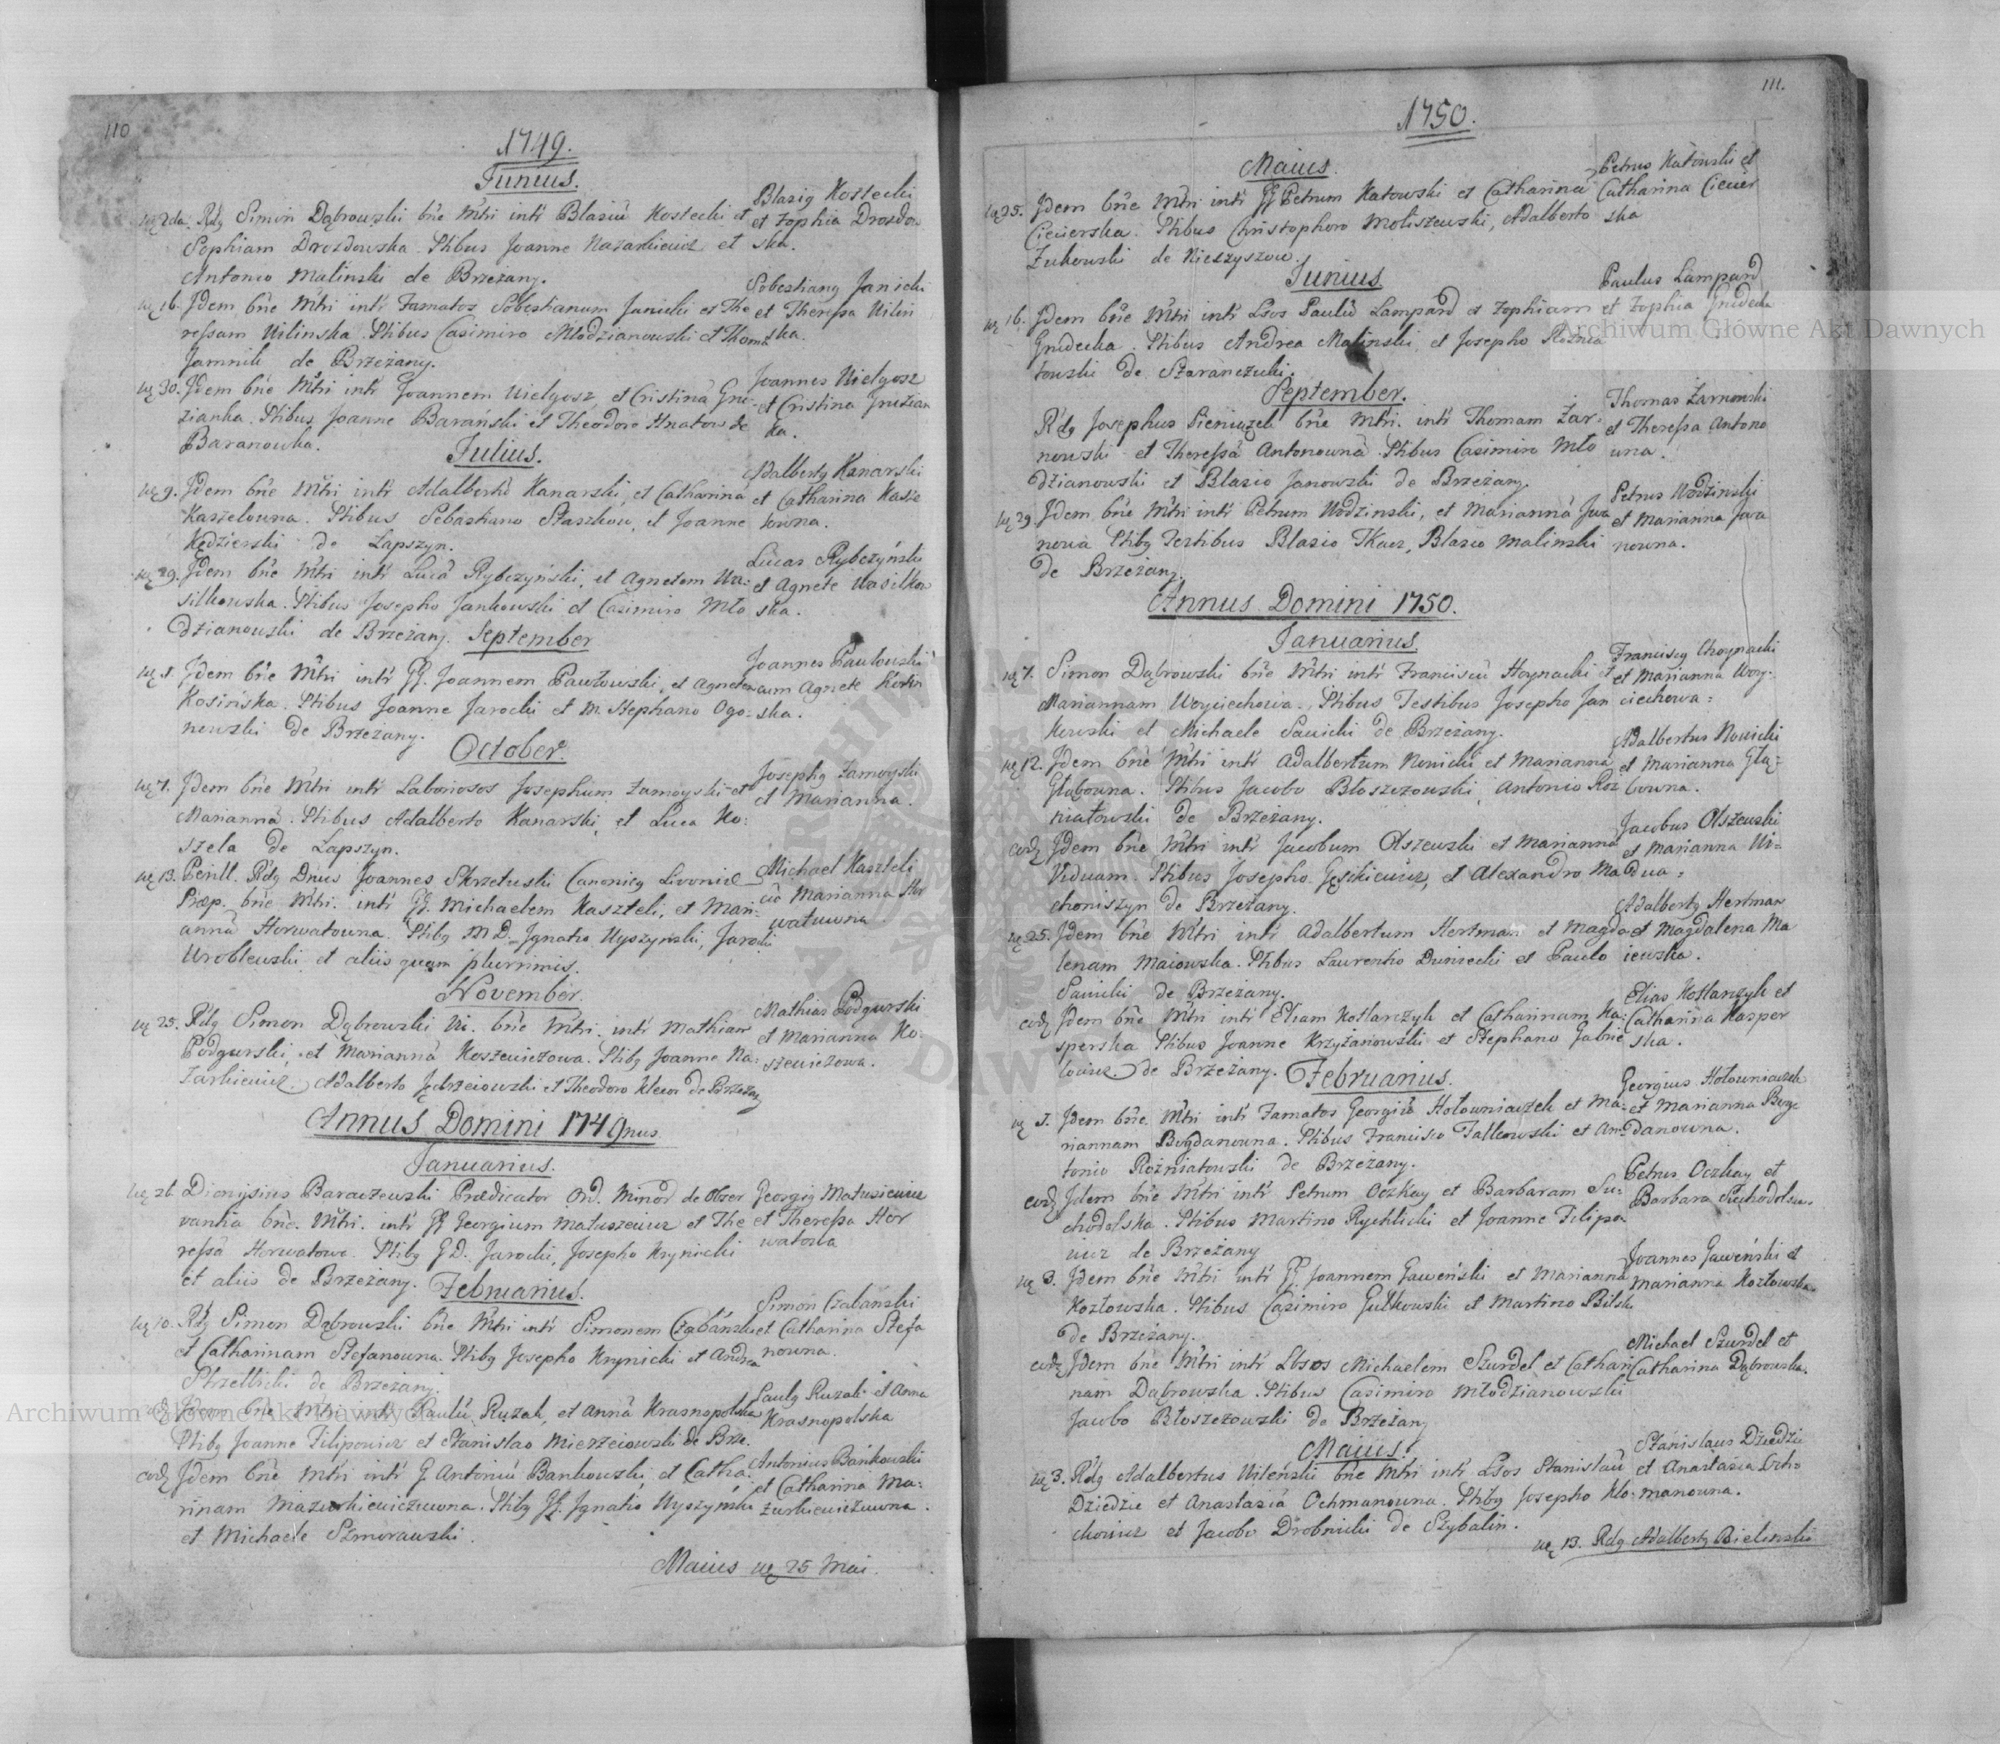 110
1749.
Junius.
die 2da. Rdg Simon Dąbrowski bñe Mtri intr Blasiū Kostecki et
Sophiam Drozdowska. Ptibus Joanne Nazarkiewicz et
Antonio Malinski de Brzeżany.
Blasig Kostecki
et Zophia Drozdow
ska.
16. Jdem bñe Mtri intr Famatos Sobestianum Janicki et The
ressam Uilinska. Ptibus Casimiro Młodzianowski et Thoma
Jamnik de Brzeżany.
Sobestiang Janicki
et Theressa Uilin
ska.
30. Jdem bñe Mtri intr Joannem Nielgosz, et Cristinā Gnie-
zianka. Ptibus Joanne Barański et Theodoro Hnatow de
Baranowka.
Joannes Nielgosz
et Cristina Gniezian
ka.
Julius.
9. Jdem bñe Mtri intr Adalbertū Kanarski, et Catharinā
Kaszelowna. Ptibus Sebastiano Staszkow, et Joanne
Kędzierski de Lapszyn.
Adalbertg Kanarski
et Catharina Kasze
lowna.
29. Jdem bñe Mtri intr Lucā Rybczyński, et Agnetem Wa-
silkowska. Ptibus Josepho Jankowski et Casimiro Mło
dzianowski de Brzeżany.
Lucas Rybczyński
et Agnete Wasilkow
ska.
September
1. Jdem bñe Mtri intr GG. Joannem Pawłowski, et Agnetem
Kosińska. Ptibus Joanne Jarocki et M. Stephano Ogo-
nowski de Brzeżany.
Joannes Pawłowski
cum Agnete Kosin
ska.
October.
7. Jdem bñe Mtri intr Laboriosos Josephum Zamoyski et
Mariannā. Ptibus Adalberto Kanarski, et Luca Ko-
szela de Lapszyn.
Josephg Zamoyski
et Marianna.
13. Perill. Rdg Dnus Joannes Skrzetuski Canonicg Livoniæ
Præp. bñe Mtri. intr GG. Michaelem Kaszteli, et Mari-
annā Horwatowna. Ptibg M D. Jgnatio Wyszyński, Jarocki
Wroblewski et aliis quam plurrimis.
Michael Kaszteli
cū Marianna Hor
watowna
November.
25. Rdg Simon Dąbrowski Vi. bñe Mtri. intr Mathiam
Podgurski, et Mariannā Koszewiczowa. Ptibg Joanne Na-
zarkiewicz, Adalberto Jędrzeiowski et Theodoro Klewor de Brzeżany
Mathias Podgurski
et Marianna Ko-
szewiczowa.
Annus Domini 1749nus
Januarius.
26. Dionysius Baraczewski Prædicator Ord. Minor de Obser
vantia bñe. Mtri. intr GG Georgium Matuszewicz et The
ressā Horwatowa. Ptibg GD. Jarocki, Josepho Krynicki
et aliis de Brzeżany.
Georgig Matusiewicz
et Theressa Hor
watowa
Februarius.
10. Rdg Simon Dąbrowski bñe Mtri intr Simonem Czabański
et Catharinam Stefanowna. Ptibg Josepho Krynicki et Andrea
Strzelbicki de Brzeżany.
Simon Czabanski
et Catharina Stefa
nowna.
Jdem bñe Mtri intr Paulū Ruzak, et Annā Krasnopolska
Ptibg Joanne Filipowicz et Stanislao Mierzeiowski de Brze.
Paulg Ruzak et Anna
Krasnopolska
eodz Jdem bñe Mtri intr G Antoniū Bankowski, et Catha-
rinam Mazurkiewiczuwna. Ptibg GG. Jgnatio Wyszyński
et Michaele Szmorawski.
Antonius Bańkowski
et Catharina Ma-
zurkiewiczuwna.
Maius 25 Mai.
111.
1750.
Maius.
25. Jdem bñe Mtri intr GG Petrum Katowski et Catharinā
Ciewierska. Ptibus Christophoro Moliszewski, Adalberto
Żukowski de Nieszyszow.
Petrus Katowski et
Catharina Ciewier
ska
Junius
16. Jdem bñe Mtri intr Lsos Paulū Lampard et Zophiam
Gnidecka. Ptibus Andrea Malinski, et Josepho Roznia
towski de Staranczuki.
Paulus Lampard
et Zophia Gnidecka
September.
Rdg Josephus Pieniążek bñe Mtri. intr Thomam Żar-
nowski et Theressā Antonownā. Ptibus Casimiro Mło
dzianowski et Blasio Janowski de Brzeżany.
Thomas Żarnowski
et Theressa Antono
wna.
29. Jdem bñe Mtri intr Petrum Wodzinski, et Mariannā Jwa
nowa Ptibg Testibus Blasio Tkacz, Blasio Malinski
de Brzeżany.
Petrus Wodzinski
et Marianna Jwa
nowna.
Annus Domini 1750.
Januarius.
7. Simon Dąbrowski bñe Mtri intr Franciscū Hoynacki et
Mariannam Woyciechowa. Ptibus Testibus Josepho Jan
kowski et Michaele Sawicki de Brzeżany.
Franciscg Choynacki
et Marianna Woy-
ciechowa.
12. Jdem bñe Mtri intr Adalbertum Nowicki et Mariannā
Głąbowna. Ptibus Jacobo Błoszczowski, Antonio Roz
niatowski de Brzeżany.
Adalbertus Nowicki
et Marianna Głą-
bowna.
eodz Jdem bñe Mtri intr Jacobum Olszewski et Mariannā
Viduam. Ptibus Josepho Gęsikiewicz, et Alexandro Ma
choniszyn de Brzeżany.
Jacobus Olszewski
et Marianna Vi-
dua.
25. Jdem bñe Mtri intr Adalbertum Hertman et Magda
lenam Maiowska. Ptibus Laurentio Duniecki et Paulo
Sawicki de Brzeżany.
Adalbertg Hertman
et Magdalena Ma
iewska.
eodz Jdem bñe Mtri intr Eliam Kotlarczyk et Catharinam Ka-
sperska Ptibus Joanne Krzyżanowski et Stephano Gabrie
lowicz de Brzeżany.
Elias Kotlarczyk et
Catharina Kasper
ska.
Februarius.
1. Jdem bñe Mtri intr Famatos Georgiū Hołowniaczek et Ma-
riannam Bogdanowna. Ptibus Francisco Falkowski et An-
tonio Rożniatowski de Brzeżany.
Georgius Hołowniaczek
et Marianna Bog
danowna.
eodz Jdem bñe Mtri intr Petrum Oczkay et Barbaram Su-
chodolska. Ptibus Martino Rychlicki et Joanne Filipo
wicz de Brzeżany
Petrus Oczkay et
Barbara Suchodolska.
3. Jdem bñe Mtri intr GG. Joannem Gaweński et Mariannā
Kozłowska. Ptibus Casimiro Gutkowski et Martino Bilski
de Brzeżany.
Joannes Gaweński et
Marianna Kozłowska.
eodz Jdem bñe Mtri intr Lbsos Michaelem Szurdel et Cathari
nam Dąbrowska. Ptibus Casimiro Młodzianowski
Jacobo Błoszczowski de Brzeżany
Michael Szurdel et
Catharina Dąbrowska.
Maius.
3. Rdg Adalbertus Uileński bñe Mtri intr Lsos Stanislaū
Dziedzic et Anastasiā Ochmanowna. Ptibg Josepho Klo-
chowicz et Jacobo Drobnicki de Szybalin.
Stanislaus Dziedzic
et Anastasia Ocho
manowna.
13. Rdg Adalbertg Bielinski
Archiwum Główne Akt Dawnych
Archiwum Główne Akt Dawnych